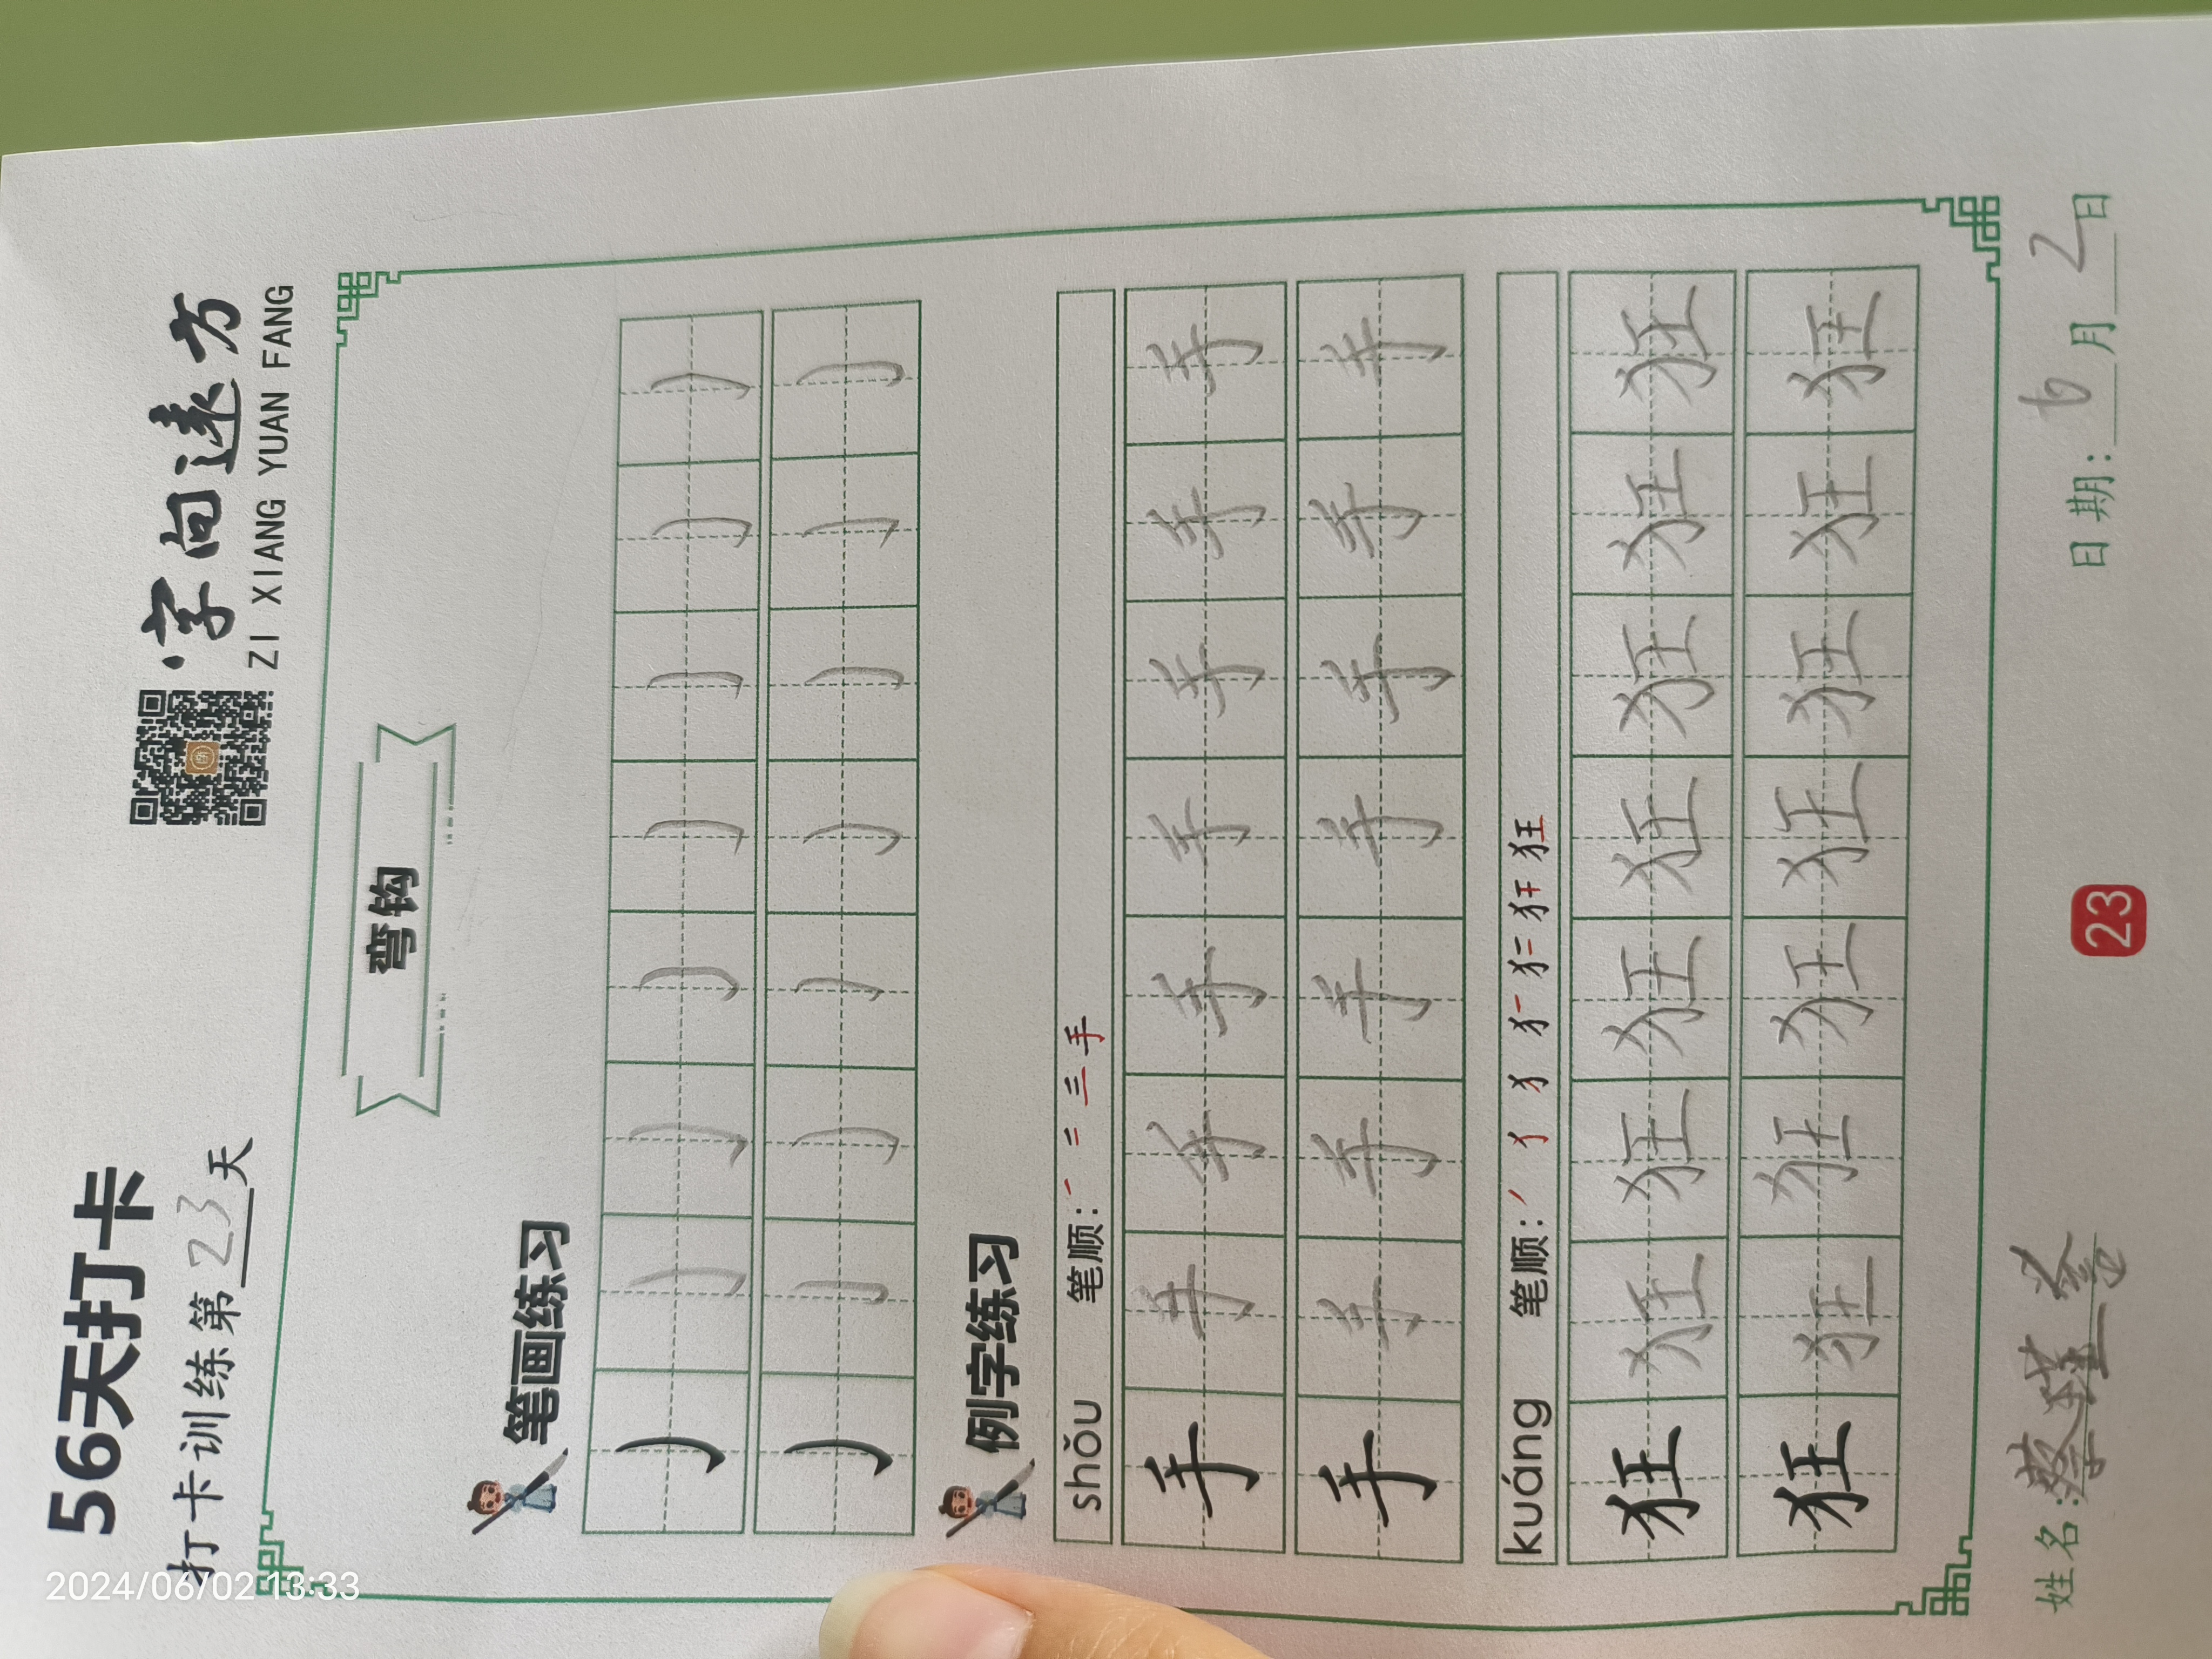 56天打卡
打卡训练第23天
字向远方
ZI XIANG YUAN FANG
弯钩
笔画练习
例字练习
shǒu 笔顺:
手 手 手 手 手 手 手 手
手 手 手 手 手 手 手 手
kuáng 笔顺:
狂 狂 狂 狂 狂 狂 狂 狂
狂 狂 狂 狂 狂 狂 狂 狂
姓名: 日期: 6月2日
23
2024/06/02 13:33